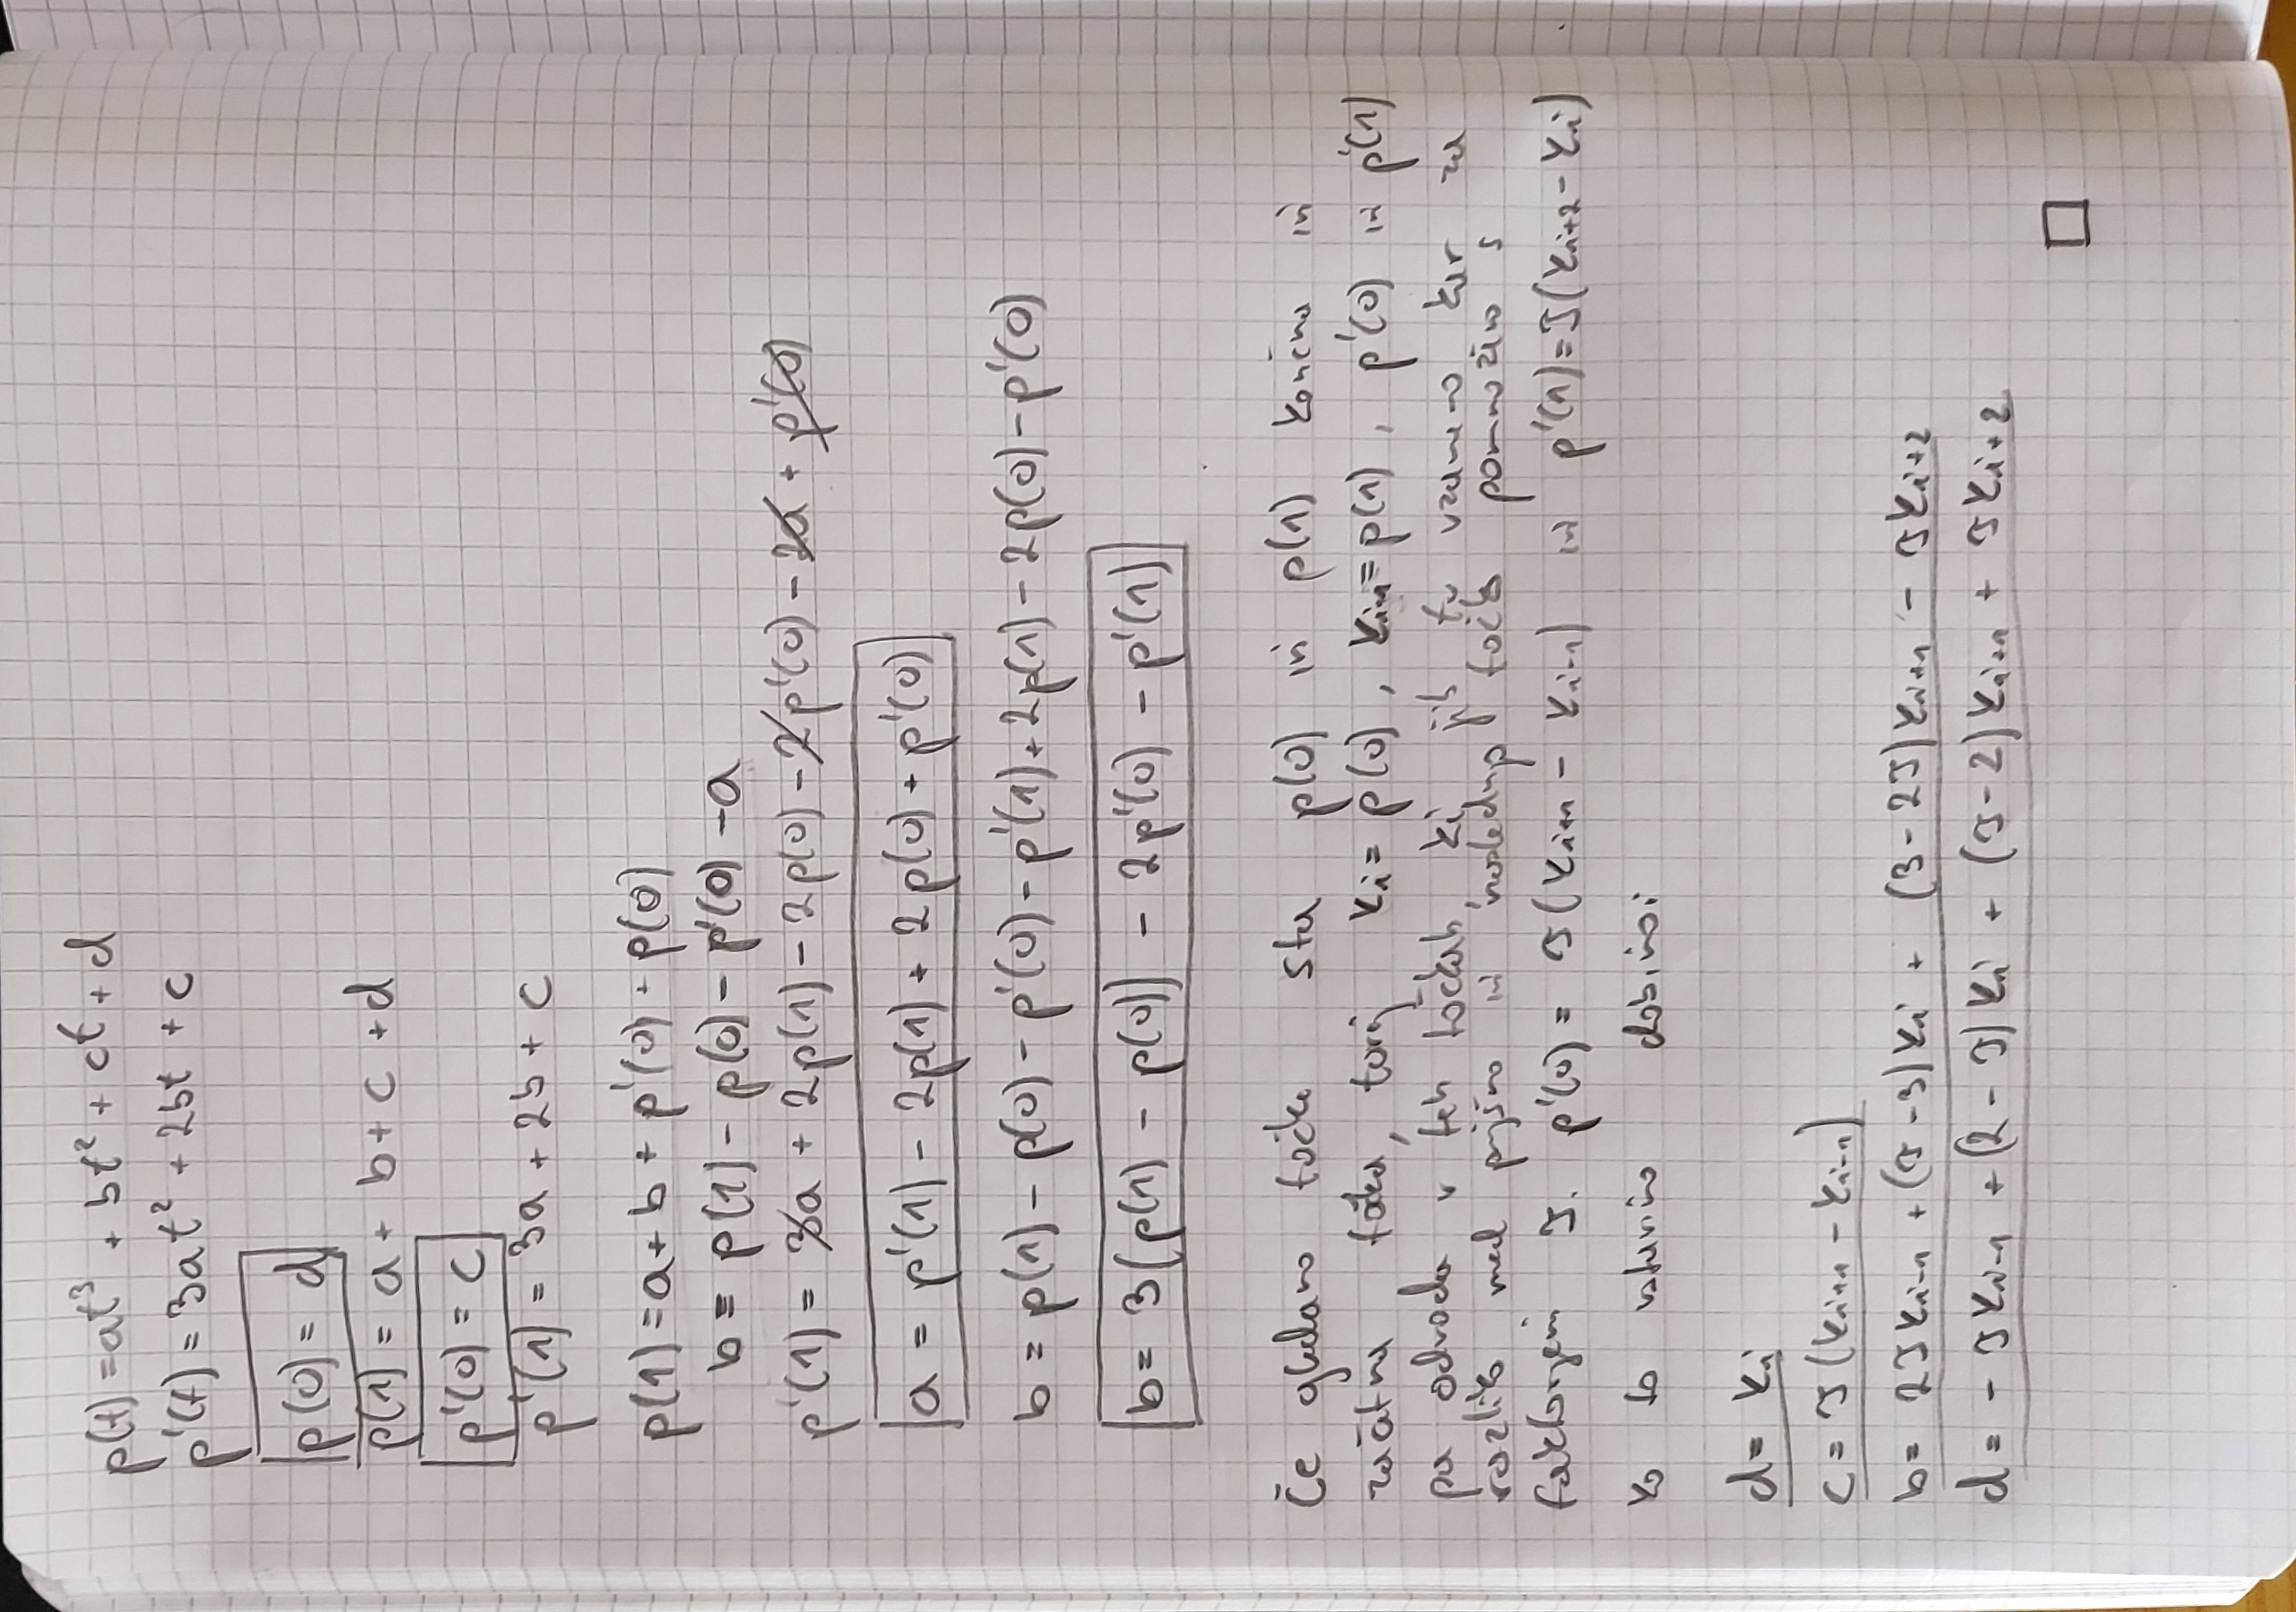 p(t) = at³ + bt² + ct + d
p'(t) = 3at² + 2bt + c
p(0) = d
p(1) = a + b + c + d
p'(0) = c
p'(1) = 3a + 2b + c
p(1) = a + b + p'(0) + p(0)
b = p(1) - p(0) - p'(0) - a
p'(1) = 3a + 2p(1) - 2p(0) - 2p'(0) - 2a + p'(0)
a = p'(1) - 2p(1) + 2p(0) + p'(0)
b = p(1) - p(0) - p'(0) - p'(1) + 2p(1) - 2p(0) - p'(0)
b = 3(p(1) - p(0)) - 2p'(0) - p'(1)
Če gledamo točke sta p(0) in p(1) končna in
začetna točka, torej Ki = p(0), Ki+1 = p(1), p'(0) in p'(1)
pa odvoda v teh točkah, ki jih tu vzamemo kar za
razliko med prejšno in naslednjo točko pomnožimo s
faktorjem τ. p'(0) = τ(Ki+1 - Ki-1) in p'(1) = τ(Ki+2 - Ki)
ko to vstavimo dobimo:
d = Ki
c = τ(Ki+1 - Ki-1)
b = 2τKi-1 + (τ-3)Ki + (3-2τ)Ki+1 - τKi+2
d = -τKi-1 + (2-τ)Ki + (τ-2)Ki+1 + τKi+2
□